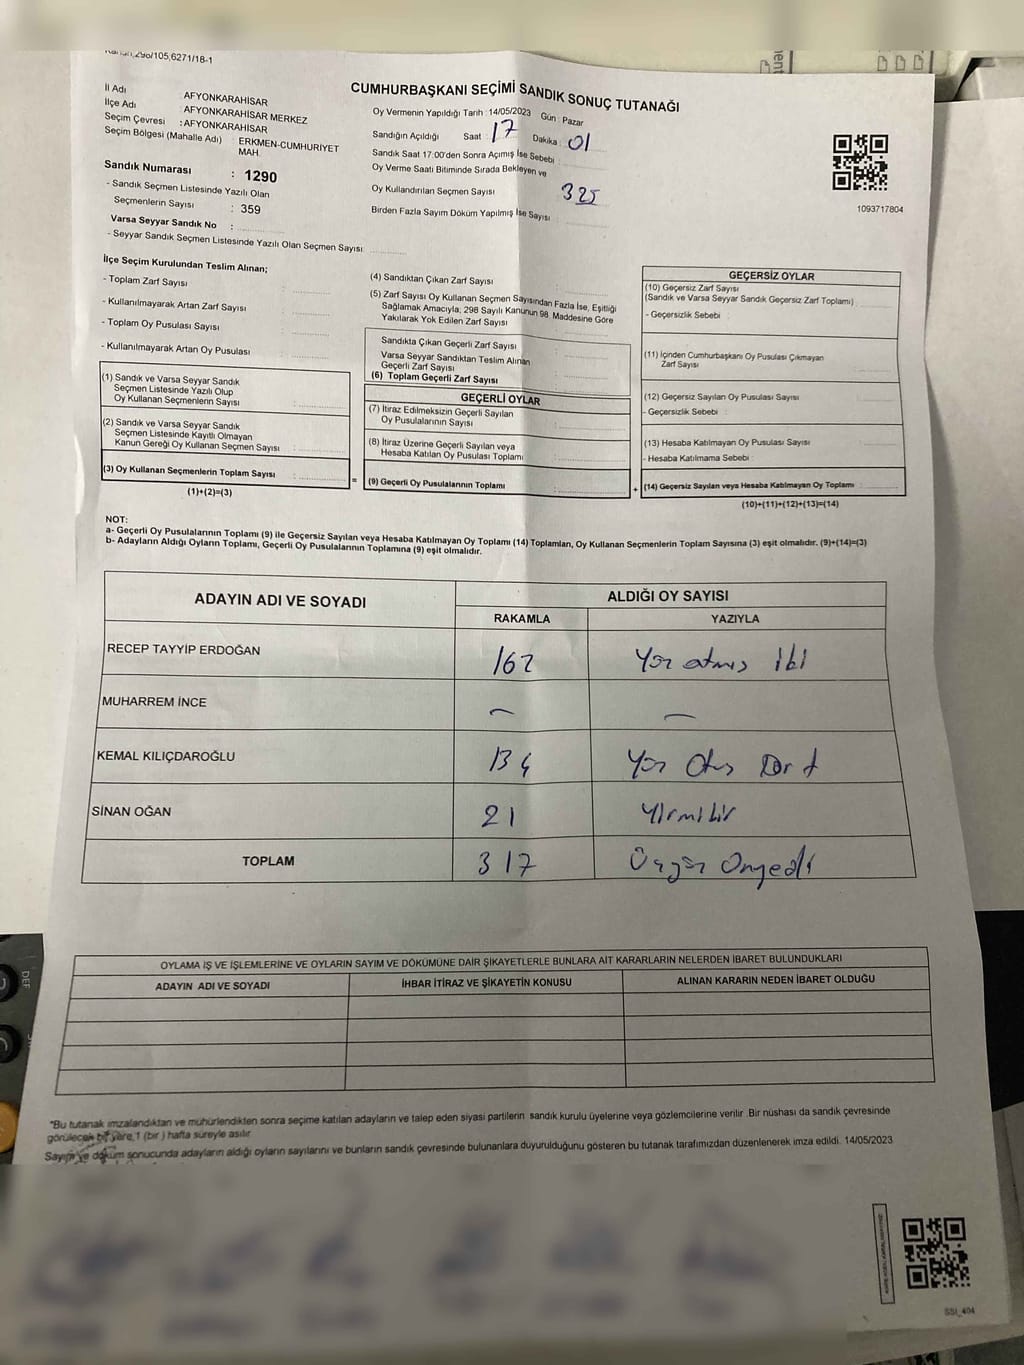 CUMHURBAŞKANI SEÇİMİ SANDIK SONUÇ TUTANAĞI
İl Adı AFYONKARAHİSAR
İlçe Adı : AFYONKARAHİSAR MERKEZ
Seçim Çevresi : AFYONKARAHİSAR
Seçim Bölgesi (Mahalle Adı) ERKMEN-CUMHURİYET
MAH.
Sandık Numarası : 1290
- Sandık Seçmen Listesinde Yazılı Olan
Seçmenlerin Sayısı : 359
Varsa Seyyar Sandık No :
- Seyyar Sandık Seçmen Listesinde Yazılı Olan Seçmen Sayısı
Oy Vermenin Yapıldığı Tarih : 14/05/2023 Gün : Pazar
Sandığın Açıldığı Saat : 17 Dakika : 01
Sandık Saat 17:00'den Sonra Açımış İse Sebebi :
Oy Verme Saati Bitiminde Sırada Bekleyen ve
Oy Kullandırılan Seçmen Sayısı 325
Birden Fazla Sayım Döküm Yapılmış İse Sayısı
1093717804
İlçe Seçim Kurulundan Teslim Alınan;
- Toplam Zarf Sayısı :
- Kullanılmayarak Artan Zarf Sayısı :
- Toplam Oy Pusulası Sayısı :
- Kullanılmayarak Artan Oy Pusulası :
(1) Sandık ve Varsa Seyyar Sandık
Seçmen Listesinde Yazılı Olup
Oy Kullanan Seçmenlerin Sayısı :
(2) Sandık ve Varsa Seyyar Sandık
Seçmen Listesinde Kayıtlı Olmayan
Kanun Gereği Oy Kullanan Seçmen Sayısı :
(3) Oy Kullanan Seçmenlerin Toplam Sayısı :
(1)+(2)=(3)
(4) Sandıktan Çıkan Zarf Sayısı
(5) Zarf Sayısı Oy Kullanan Seçmen Sayısından Fazla İse, Eşitliği
Sağlamak Amacıyla; 298 Sayılı Kanunun 98. Maddesine Göre
Yakılarak Yok Edilen Zarf Sayısı
Sandıkta Çıkan Geçerli Zarf Sayısı
Varsa Seyyar Sandıktan Teslim Alınan
Geçerli Zarf Sayısı
(6) Toplam Geçerli Zarf Sayısı
GEÇERLİ OYLAR
(7) İtiraz Edilmeksizin Geçerli Sayılan
Oy Pusulalarının Sayısı
(8) İtiraz Üzerine Geçerli Sayılan veya
Hesaba Katılan Oy Pusulası Toplamı
= (9) Geçerli Oy Pusulalarının Toplamı
GEÇERSİZ OYLAR
(10) Geçersiz Zarf Sayısı
(Sandık ve Varsa Seyyar Sandık Geçersiz Zarf Toplamı)
- Geçersizlik Sebebi :
(11) İçinden Cumhurbaşkanı Oy Pusulası Çıkmayan
Zarf Sayısı
(12) Geçersiz Sayılan Oy Pusulası Sayısı
- Geçersizlik Sebebi :
(13) Hesaba Katılmayan Oy Pusulası Sayısı
- Hesaba Katılmama Sebebi :
+ (14) Geçersiz Sayılan veya Hesaba Katılmayan Oy Toplamı :
(10)+(11)+(12)+(13)=(14)
NOT:
a- Geçerli Oy Pusulalarının Toplamı (9) ile Geçersiz Sayılan veya Hesaba Katılmayan Oy Toplamı (14) Toplamları, Oy Kullanan Seçmenlerin Toplam Sayısına (3) eşit olmalıdır. (9)+(14)=(3)
b- Adayların Aldığı Oyların Toplamı, Geçerli Oy Pusulalarının Toplamına (9) eşit olmalıdır.
ADAYIN ADI VE SOYADI ALDIĞI OY SAYISI
RAKAMLA YAZIYLA
RECEP TAYYİP ERDOĞAN 162 Yüz atmış iki
MUHARREM İNCE – –
KEMAL KILIÇDAROĞLU 134 Yüz Otuz Dört
SİNAN OĞAN 21 Yirmibir
TOPLAM 317 Üçyüz Onyedi
OYLAMA İŞ VE İŞLEMLERİNE VE OYLARIN SAYIM VE DÖKÜMÜNE DAİR ŞİKAYETLERLE BUNLARA AİT KARARLARIN NELERDEN İBARET BULUNDUKLARI
ADAYIN ADI VE SOYADI İHBAR İTİRAZ VE ŞİKAYETİN KONUSU ALINAN KARARIN NEDEN İBARET OLDUĞU
*Bu tutanak imzalandıktan ve mühürlendikten sonra seçime katılan adayların ve talep eden siyasi partilerin sandık kurulu üyelerine veya gözlemcilerine verilir. Bir nüshası da sandık çevresinde
görülecek bir yere 1 (bir) hafta süreyle asılır.
Sayım ve döküm sonucunda adayların aldığı oyların sayılarını ve bunların sandık çevresinde bulunanlara duyurulduğunu gösteren bu tutanak tarafımızdan düzenlenerek imza edildi. 14/05/2023
SSI_404
DEF